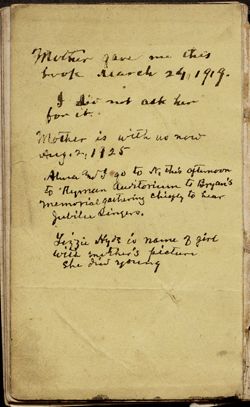 Mother gave me this
book March 24, 1919.
I did not ask her
for it.
Mother is with us now
Aug. 2, 1925
Alma & I go to N. this afternoon
to Ryman Auditorium to Bryan's
Memorial gathering chiefly to hear
Jubilee Singers.
Lizzie Hyde is name of girl
with mother's picture
She died young